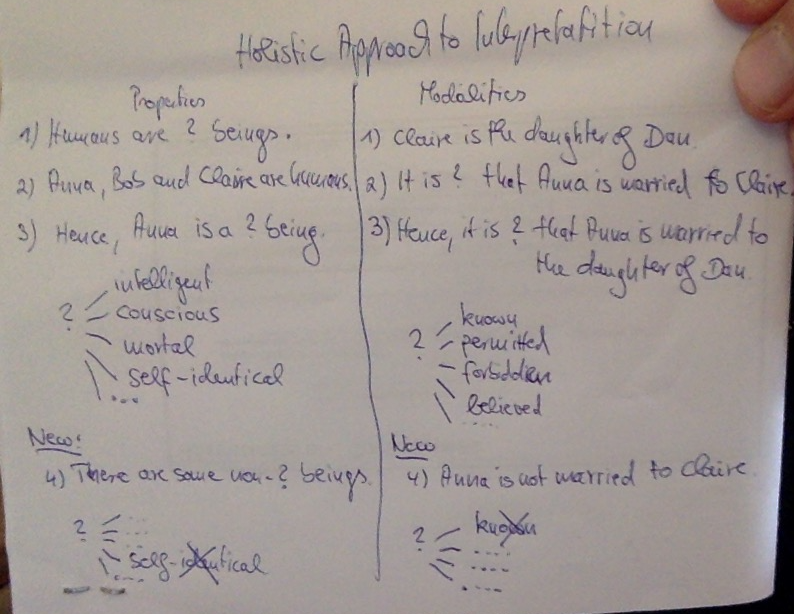 Holistic Approach to Interpretatition
Properties
1) Humans are ? beings.
2) Anna, Bob and Claire are humans.
3) Hence, Anna is a ? being.
? intelligent
conscious
mortal
self-identical
...
New:
4) There are some non-? beings.
? ...
self-identical
...
Modalities
1) Claire is the daughter of Dan.
2) It is ? that Anna is married to Claire.
3) Hence, it is ? that Anna is married to
the daughter of Dan.
? known
permitted
forbidden
believed
....
New
4) Anna is not married to Claire.
? known
....
....
....